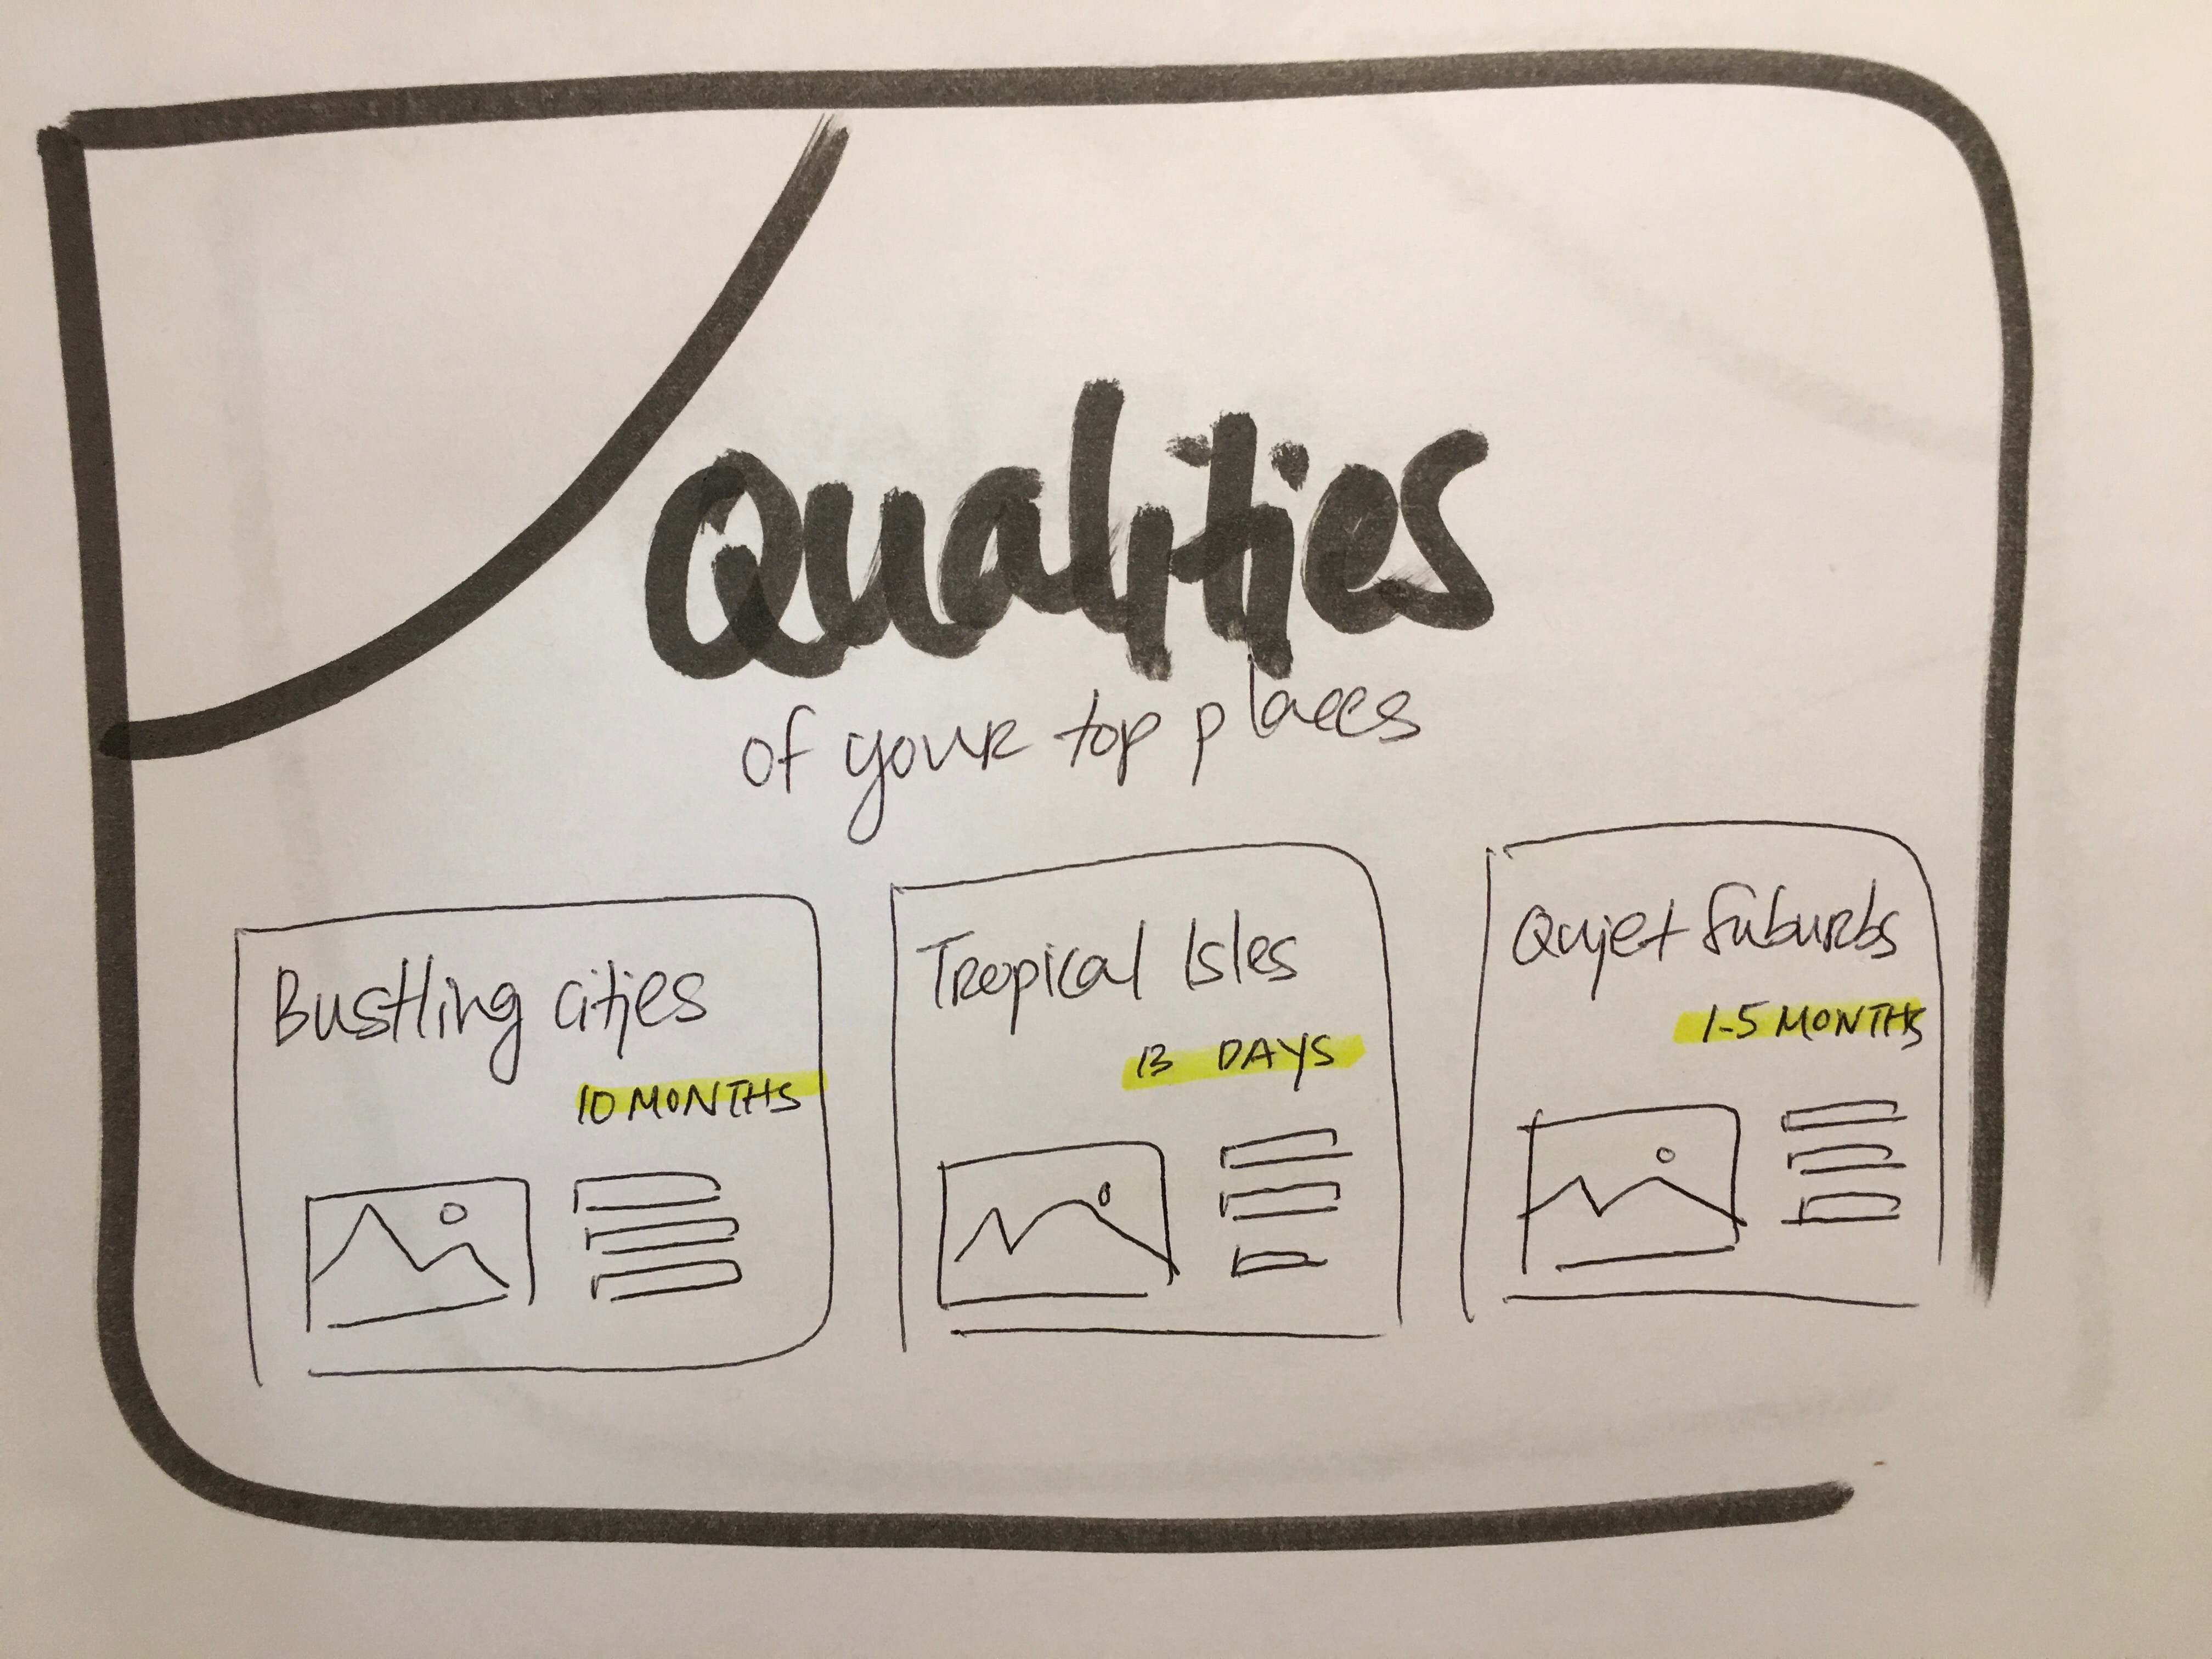 Qualities
of your top places
Bustling cities
10 MONTHS
Tropical Isles
13 DAYS
Quiet Suburbs
1-5 MONTHS